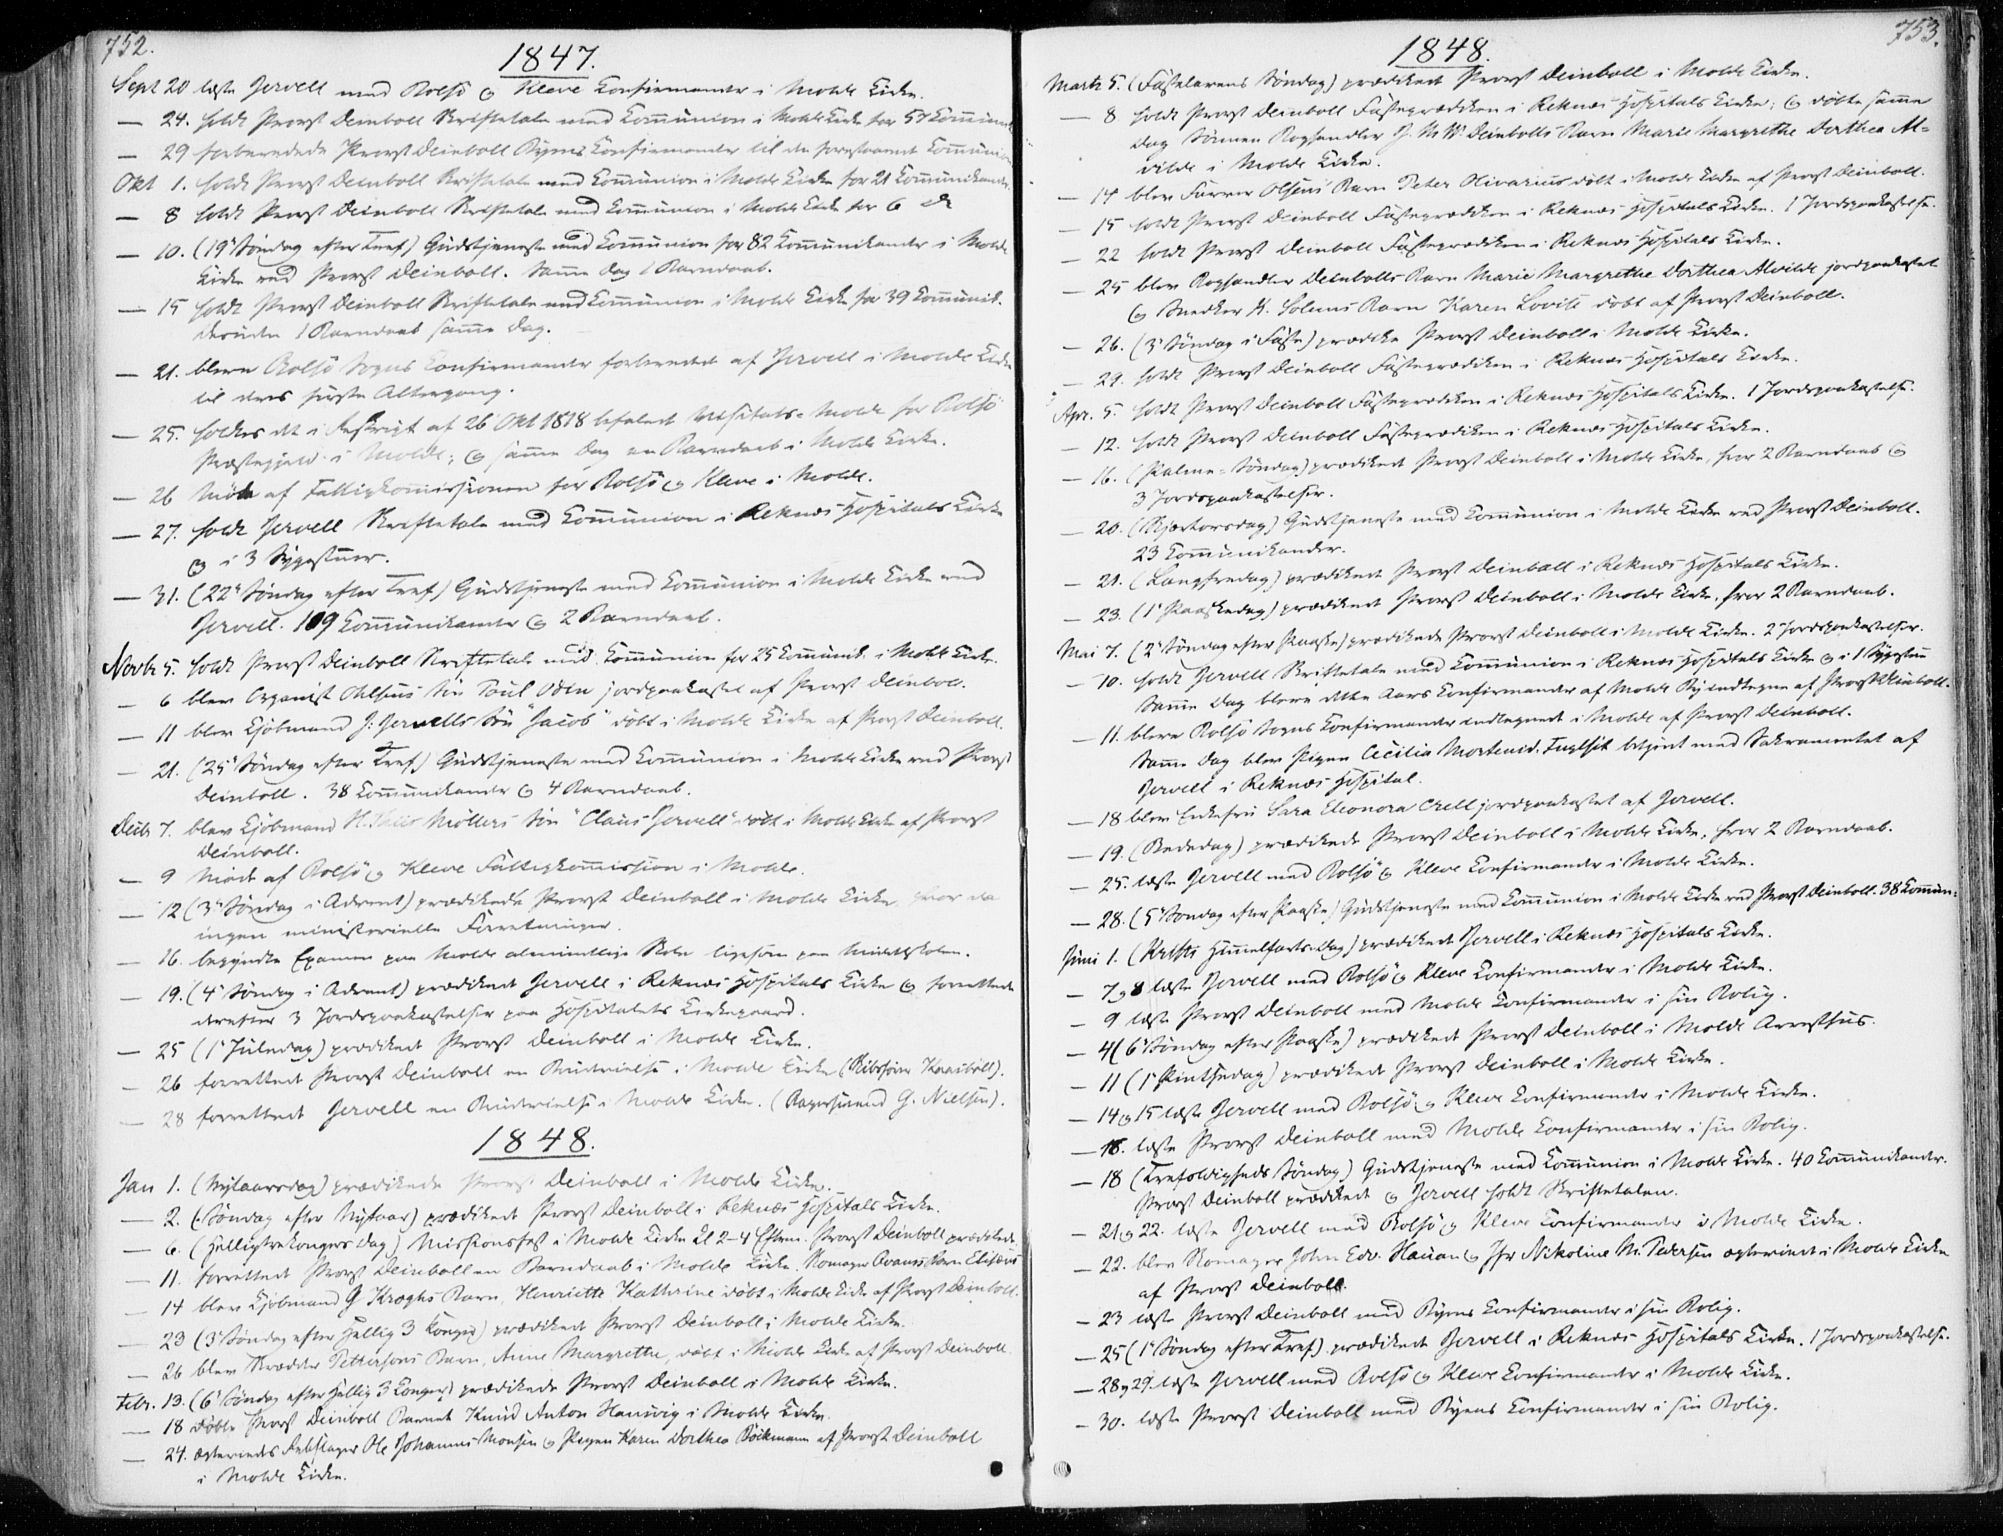 752.
1847.
Sept 20 læste Jervell med Bolsø og Kleve Confirmander i Molde Kirke.
— 24. holdt Provst Deinboll Skriftetale med Communion i Molde Kirke for 57 Communik
— 29 forberedede Provst Deinboll Byens Confirmander til den forestaaende Communion
Okt 1. holdt Provst Deinboll Skriftetale med Communion i Molde Kirke for 21 Communikander.
— 8 holdt Provst Deinboll Skriftetale med Communion i Molde Kirke for 6
— 10. (19 Søndag efter Tref) Gudstjeneste med Communion for 82 Communikander i Molde
Kirke ved Provst Deinboll. Samme Dag 1 Barndaab.
— 15 holdt Provst Deinboll Skriftetale med Communion i Molde Kirke for 39 Communik.
desuden 1 Barndaab samme Dag.
— 21. bleve Bolsø Sogns Confirmander forberedet af Jervell i Molde Kirke
til deres første Altergang.
— 25. holdtes det i Reskript af 26 Okt 1818 befalede Møde for Bolsø
Præstegjeld i Molde; og samme Dag en Barndaab i Molde Kirke.
— 26 Møde af Fattigkommissionen for Bolsø og Kleve i Molde.
— 27. holdt Jervell Skriftetale med Communion i Reknæs Hospitals Kirke
og i 3 Sygestuer.
— 31. (22 Søndag efter Tref) Gudstjeneste med Communion i Molde Kirke ved
Jervell. 109 Communikanter og 2 Barndaab.
Novbr 5. holdt Provst Deinboll Skriftetale med Communion for 25 Communik. i Molde Kirke.
— 6 blev Organist Ohlsens Søn Poul Oden jordpaakastet af Provst Deinboll.
— 11 blev Kjøbmand J. Jervells Søn "Jacob" døbt i Molde Kirke af Provst Deinboll.
— 21. (25 Søndag efter Tref) Gudstjeneste med Communion i Molde Kirke ved Provst
Deinboll. 38 Communikander og 4 Barndaab.
Decbr 7. blev Kjøbmand Møllers Søn "Claus Jervell" døbt i Molde Kirke af Provst
Deinboll.
— 9 Møde af Bolsø og Kleve Fattigkommission i Molde.
— 12 (3 Søndag i Advent) prædikede Provst Deinboll i Molde Kirke, hvor da
ingen ministerielle Forretninger.
— 16. begyndte Examen paa Molde almindelige Skole ligesom paa Middelskolen.
— 19. (4 Søndag i Advent) prædikede Jervell i Reknæs Hospitals Kirke og forrettede
derefter 3 Jordspaakastelser paa Hospitalets Kirkegaard.
— 25 (1 Juledag) prædikede Provst Deinboll i Molde Kirke.
— 26 forrettede Provst Deinboll en Brudevielse i Molde Kirke
— 28 forrettede Jervell en Brudevielse i Molde Kirke. (G. Nielsen).
1848.
Jan 1. (Nytaarsdag) prædikede Provst Deinboll i Molde Kirke.
— 2. (Søndag efter Nytaar) prædikede Provst Deinboll i Reknæs Hospitals Kirke.
— 6. (Helligtrekongers Dag) Missionsfest i Molde Kirke Kl 2-4 Efterm. Provst Deinboll prædikede.
— 11. forrettede Provst Deinboll en Barndaab i Molde Kirke.
— 14 blev Kjøbmand G Kroghs Barn, Henriette Kathrine døbt i Molde Kirke af Provst Deinboll.
— 23 (3 Søndag efter Hellig 3 Konger) prædikede Provst Deinboll i Molde Kirke.
— 26 blev Skrædder Pettersons Barn, Anne Margrethe, døbt i Molde Kirke af Provst Deinboll.
Febr. 13. (6 Søndag efter Hellig 3 Konger) prædikede Provst Deinboll i Molde Kirke.
— 18 døbte Provst Deinboll Barnet Knud Anton Hanwig i Molde Kirke.
— 24. ægteviedes Rebslager Ole Johannes Monsen og Pigen Karen Dorthea Bøckmann af Provst Deinboll
i Molde Kirke.
753.
1848.
Marts 5. (Fastelavens Søndag) prædikede Provst Deinboll i Molde Kirke.
— 8 holdt Provst Deinboll Fasteprædiken i Reknæs Hospitals Kirke; og døbte samme
Dag Sønnen Boghandler J. M. W. Deinbolls Barn Marie Margrethe Dorthea Al-
vilde i Molde Kirke.
— 14 blev Farver Olsens Barn Peter Olivarius døbt i Molde Kirke af Provst Deinboll.
— 15 holdt Provst Deinboll Fasteprædiken i Reknæs Hospitals Kirke. 1 Jordspaakastelse.
— 22 holdt Provst Deinboll Fasteprædiken i Reknæs Hospitals Kirke.
— 25 blev Boghandler Deinbolls Barn Marie Margrethe Dorthea Alvilde jordpaakastet
og Snedker K. Solems Barn Karen Lovise døbt af Provst Deinboll.
— 26. (3 Søndag i Faste) prædike Provst Deinboll i Molde Kirke.
— 29. holdt Provst Deinboll Fasteprædiken i Reknæs Hospitals Kirke.
Apr. 5. holdt Provst Deinboll Fasteprædiken i Reknæs Hospitals Kirke. 1 Jordspaakastelse.
— 12. holdt Provst Deinboll Fasteprædiken i Reknæs Hospitals Kirke.
— 16. (Palme-Søndag) prædikede Provst Deinboll i Molde Kirke, hvor 2 Barndaab og
3 Jordspaakastelser.
— 20. (Skjærtorsdag) Gudstjeneste med Communion i Molde Kirke ved Provst Deinboll.
23 Communikander.
— 21. (Langfredag) prædikede Provst Deinboll i Reknæs Hospitals Kirke.
— 23. (1 Paaskedag) prædikede Provst Deinboll i Molde Kirke, hvor 2 Barndaab.
Mai 7. (2 Søndag efter Paaske) prædikede Provst Deinboll i Molde Kirke. 2 Jordspaakastelser.
— 10. holdt Jervell Skriftetale med Communion i Reknæs Hospitals Kirke og i 1 Sygestue
Samme Dag bleve dette Aars Confirmander af Molde By indtegnet af Provst Deinboll.
— 11. bleve Bolsø Sogns Confirmander indtegnede i Molde af Provst Deinboll.
Samme Dag blev Pigen Cecilia Mortensd. Fuglset betjent med Sakramentet af
Jervell i Reknæs Hospital.
— 18 blev Enkefru Sara Eleonora Crell jordpaakastet af Jervell.
— 19. (Bededag) prædikede Provst Deinboll i Molde Kirke, hvor 2 Barndaab.
— 25. læste Jervell med Bolsø og Kleve Confirmander i Molde Kirke.
— 28. (5 Søndag efter Paaske) Gudstjeneste med Communion i Molde Kirke ved Provst Deinboll. 38 Commun:
Juni 1. (Kristi Himmelfarts-Dag) prædikede Jervell i Reknæs Hospitals Kirke.
— 7 og 8 læste Jervell med Bolsø og Kleve Confirmander i Molde Kirke.
— 9 læste Provst Deinboll med Molde Confirmander i sin Bolig.
— 4 (6 Søndag efter Paaske) prædikede Provst Deinboll i Molde Arresthus.
— 11 (1 Pintsedag) prædikede Provst Deinboll i Molde Kirke.
— 14 og 15 læste Jervell med Bolsø og Kleve Confirmander i Molde Kirke.
— 16. læste Provst Deinboll med Molde Confirmander i sin Bolig.
— 18 (Trefoldigheds Søndag) Gudstjeneste med Communion i Molde Kirke. 40 Communikander.
Provst Deinboll prædikede og Jervell holdt Skriftetalen.
— 21 og 22. læste Jervell med Bolsø og Kleve Confirmander i Molde Kirke.
— 22. blev Skomager John Edv. Hauan og Jfr Nikoline M. Pedersen ægteviede i Molde Kirke
af Provst Deinboll.
— 23 læste Provst Deinboll med Byens Confirmander i sin Bolig.
— 25 (1 Søndag efter Tref) prædikede Jervell i Reknæs Hospitals Kirke. 1 Jordspaakastelse.
— 28 og 29. læste Jervell med Bolsø og Kleve Confirmander i Molde Kirke.
— 30. læste Provst Deinboll med Byens Confirmander i sin Bolig.